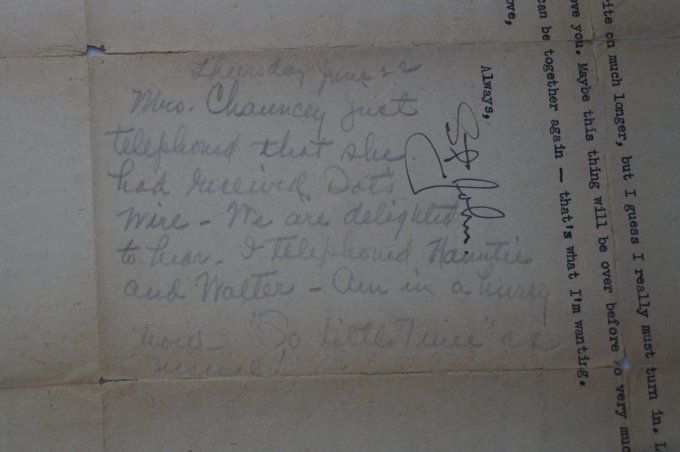 Thursday June 22
Mrs. Chauncey just
telephoned that she
had received Dot's
wire - We are delighted
to hear. I telephoned Nanntie
and Walter - Am in a hurry
now "So Little Time" as
usual!
ite on much longer, but I guess I really must turn in. L
ove you. Maybe this thing will be over before to very muc
can be together again — that's what I'm wanting.
ove,
Always,
St John